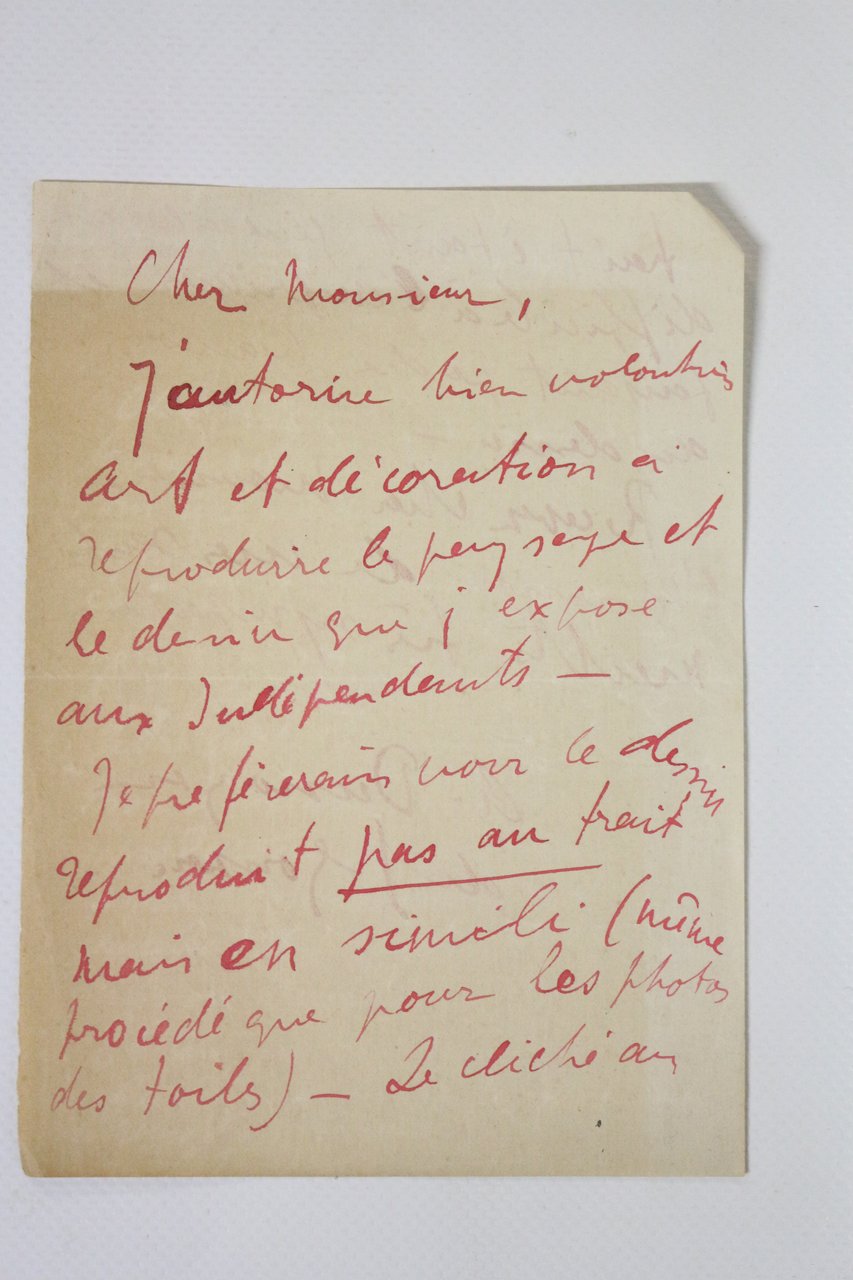 Cher Monsieur,
J'autorise bien volontiers
Art et décoration à
reproduire le paysage et
le dessin que j'expose
aux Indépendants —
Je préfèrerais voir le dessin
reproduit pas au trait
mais en simili (même
procédé que pour les photos
des toiles) — Le cliché au